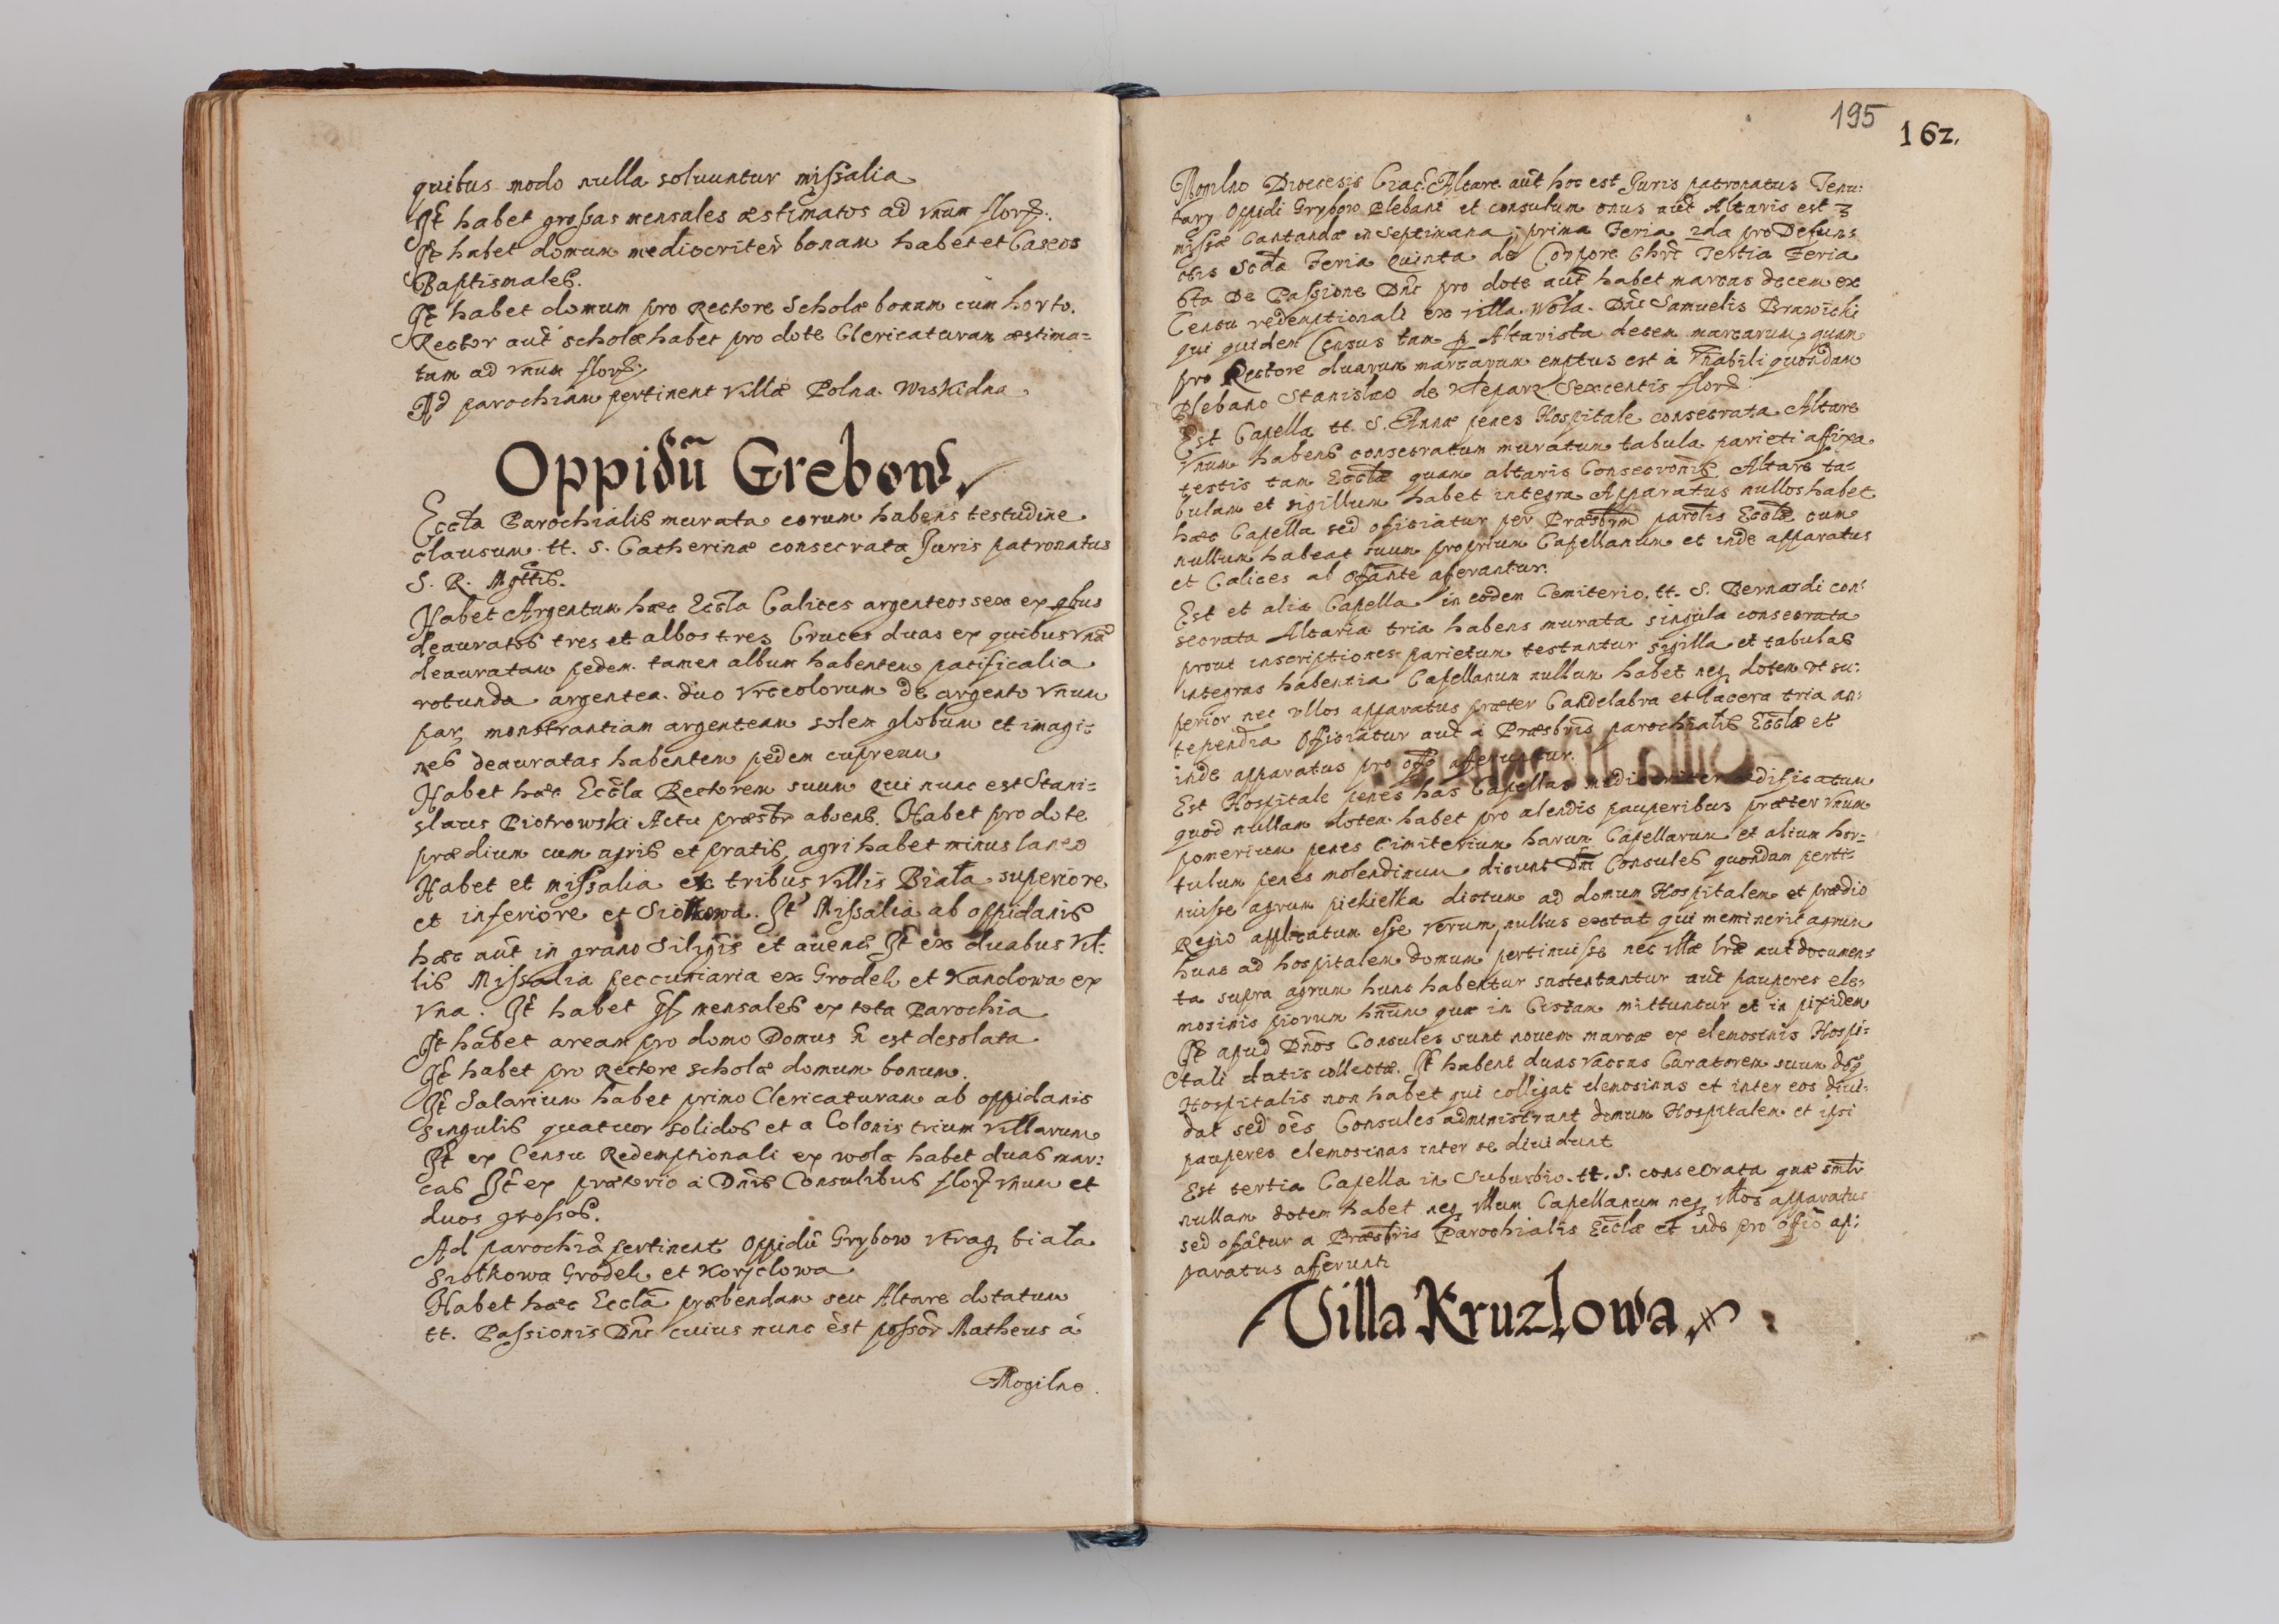 quibus modo nulla soluuntur missalia
It habet grossas mensales æstimatos ad vnum flor.
It habet domum mediocriter bonam habet et Caseos
Baptismales.
It habet domum pro Rectore Scholæ bonam cum horto.
Rector aut scholæ habet pro dote Clericaturam æstima=
tam ad vnum flor.
Ad parochiam pertinent villæ Polna Wiskidna
Oppidũ Grebow
Eccla Parochialis murata corum habens testudine
clausum tt. S. Catherinæ consecrata Juris patronatus
S. R. Mgttis.
Habet Argentum hæc Eccla Calices argenteos sex ex qbus
deauratos tres et albos tres Cruces duas ex quibus vnã
deauratam pedem tamen album habentem pacificalia
rotunda argentea duo vrceolorum de argento vnum
par, monstrantiam argenteam solem globum et imagi=
nes deauratas habentem pedem cupreum
Habet hæc Eccla Rectorem suum qui nunc est Stani=
slaus Piotrowski Actu præsbr absens. Habet pro dote
prædium cum agris et pratis, agri habet minus laneo
Habet et missalia ex tribus villis Biała superiore
et inferiore et Siołkowa. It Missalia ab oppidanis
hæc aut in grano Siliginis et auenæ It ex duabus vil=
lis Missalia peccuniaria ex Grodek et Kanclowa ex
vna. It habet mensales ex tota Parochia
It habet aream pro domo Domus est desolata
It habet pro Rectore scholæ domum bonum.
It Salarium habet primo Clericaturam ab oppidanis
singulis quatuor solidos et a Colonis trium villarum
It ex Censu Redemptionali ex wola habet duas mar=
cas It ex prætorio a Dnis Consulibus flor vnum et
duos grossos.
Ad parochiã pertinent Oppidũ Grybow vtraq biała
Siołkowa Grodek et Korzclowa
Habet hæc Eccla præbendam seu Altare dotatum
tt. Passionis Dni cuius nunc est possor Matheus a
Mogilno.
195
162.
Mogilno Diocesis Crac. Altare aut hoc est Juris patronatus Tenu=
tary Oppidi Grybow Plebani et consulum onus aut Altaris est 3
missæ Cantandæ in Septimana, prima Feria 2da pro Defun=
ctis Scda Feria quinta de Corpore Chri Tertia Feria
6ta De Passione Dni pro dote aut habet marcas decem ex
Censu redemptionali ex villa Wola Dni Samuelis Branicki
qui quidem Census tam p Altarista decem marcarum quam
pro Rectore duarum marcarum emptus est a Vnabili quondam
Plebano Stanislao de Kleparz Sexcentis flor
Est Capella tt. S. Annæ penes Hospitale consecrata Altare
vnum habens consecratum muratum tabula parieti affixa
testis tam Ecclæ quam altaris Consecronis Altare ta=
bulam et sigillum habet integra Apparatus nullos habet
hæc Capella sed oficiatur per Præsbrm parolis Ecclæ cum
nullum habeat suum proprium Capellanum et inde apparatus
et Calices ab ofante aferantur.
Est et alia Capella in eodem Cemiterio tt. S. Bernardi con=
secrata Altaria tria habens murata singula consecrata
prout inscriptiones parietum testantur sigilla et tabulas
integras habentia Capellanum nullum habet neq dotem vt su=
perior nec vllos apparatus præter Candelabra et lacera tria an=
tependia Officiatur aut a Præsbris parochialis Ecclæ et
inde apparatus pro offo afferuntur.
Est Hospitale penes has Capellas mediocriter ædificatum
quod nullam dotem habet pro alendis pauperibus præter vnum
pomerium penes Cimiterium harum Capellarum et alium hor=
tulum penes molendinum dicunt Dni Consules quondam perti=
nuisse agrum piekiełka dictum ad domum Hospitalem et prædio
Regio applicatum esse verum nullus extat qui meminerit agrum
hunc ad hospitalem domum pertinuisse nec vllæ lræ aut documen=
ta supra agrum hunc habentur sustentantur aut pauperes ele=
mosinis piorum hnum quæ in Cistam mittuntur et in pixidem
It apud Dnos Consules sunt nouem marcæ ex elemosinis Hospi=
tali datis collectæ. It habent duas vaccas Curatorem suum
Hospitalis non habet qui colligat elemosinas et inter eos diui=
dat sed oes Consules administrant domum Hospitalem et ipsi
pauperes elemosinas inter se diuidunt
Est tertia Capella in Suburbio tt. S. consecrata quæ smlr
nullam dotem habet neq vllum Capellanum neq vllos apparatus
sed ofatur a Præsbris Parochialis Ecclæ et inde pro offio ap=
paratus afferunt
Villa Kruzlowa